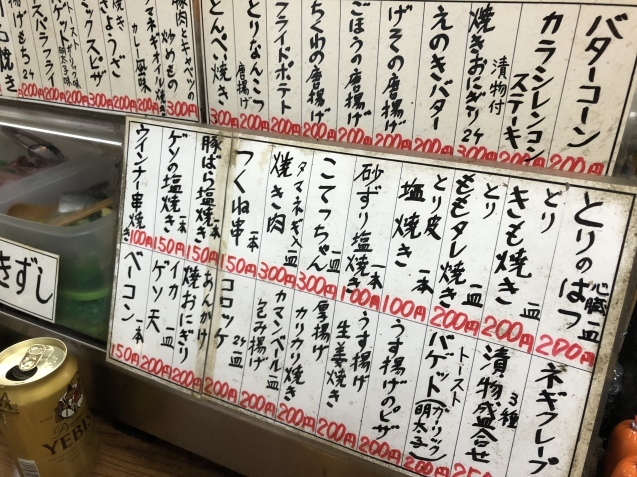 バターコーン 200円
カラシレンコンステーキ 200円
漬物付 焼きおにぎり 2ケ 300円
えのきバター 200円
げその唐揚げ 200円
ごぼうの唐揚げ 200円
ちくわの唐揚げ 200円
フライドポテト 200円
とりなんこつ唐揚げ 200円
とんぺい焼き 300円
豚肉とキャベツの炒めもの 300円
カレー風味
とりのはつ 心臓 一皿 200円
とりきも焼き 一皿 200円
とりももタレ焼き 一皿 200円
とり皮塩焼き 一本 100円
砂ずり塩焼き 一本 100円
こてっちゃん 一皿 300円
タマネギ入 焼き肉 一皿 300円
つくね串 一本 150円
豚ばら塩焼き 一本 150円
ゲソの塩焼き 150円
ウインナー串焼き 100円
ネギクレープ
3種 漬物盛合せ
トースト バゲット(ガーリック 明太子) 200円
うす揚げのピザ 200円
うす揚げ生姜焼き 200円
厚揚げカリカリ焼き 200円
カマンベール包み揚げ 一皿 200円
コロッケ 2ケ 一皿 200円
あんかけ焼おにぎり 200円
イカゲソ天 一皿 200円
ベーコン 一本 150円
きずし
YEBIS